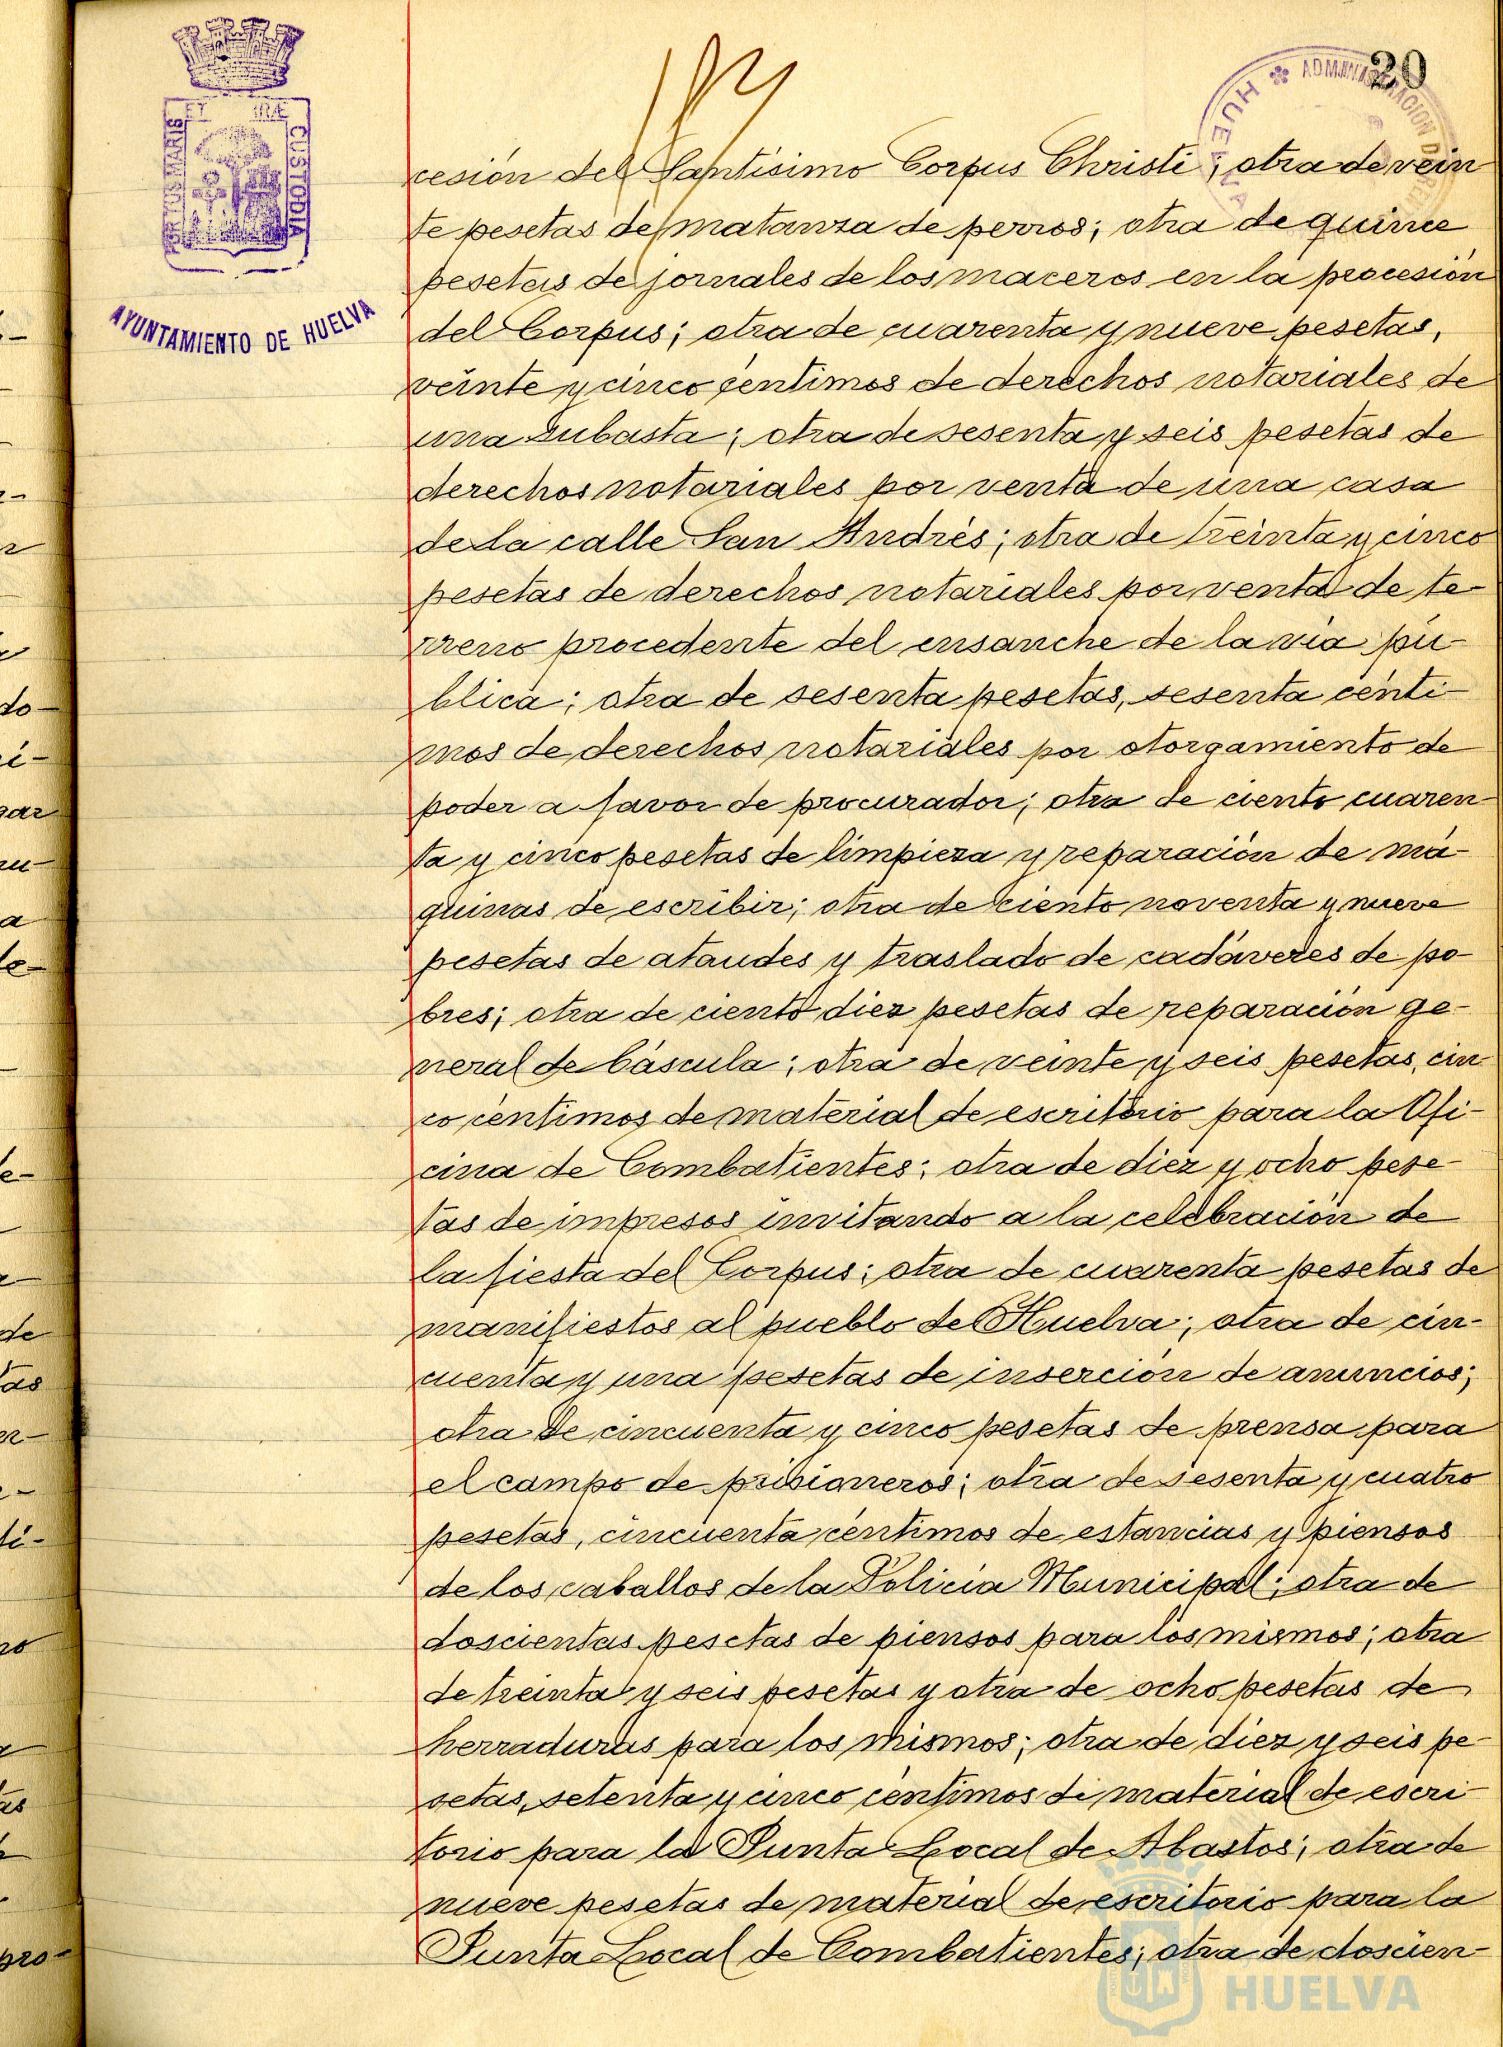 20
PORTUS MARIS ET TERRÆ CUSTODIA
AYUNTAMIENTO DE HUELVA
ADMINISTRACION DE
HUELVA
cesión del Santísimo Corpus Christi; otra de vein
te pesetas de matanza de perros; otra de quince
pesetas de jornales de los maceros en la procesión
del Corpus; otra de cuarenta y nueve pesetas,
veinte y cinco céntimos de derechos notariales de
una subasta; otra de sesenta y seis pesetas de
derechos notariales por venta de una casa
de la calle San Andrés; otra de treinta y cinco
pesetas de derechos notariales por venta de te-
rreno procedente del ensanche de la vía pú-
blica; otra de sesenta pesetas, sesenta cénti-
mos de derechos notariales por otorgamiento de
poder a favor de procurador; otra de ciento cuaren-
ta y cinco pesetas de limpieza y reparación de má-
quinas de escribir; otra de ciento noventa y nueve
pesetas de ataudes y traslado de cadáveres de po-
bres; otra de ciento diez pesetas de reparación ge-
neral de báscula; otra de veinte y seis pesetas, cin
co céntimos de material de escritorio para la Ofi-
cina de Combatientes; otra de diez y ocho pese-
tas de impresos invitando a la celebración de
la fiesta del Corpus; otra de cuarenta pesetas de
manifiestos al pueblo de Huelva; otra de cin-
cuenta y una pesetas de inserción de anuncios;
otra de cincuenta y cinco pesetas de prensa para
el campo de prisioneros; otra de sesenta y cuatro
pesetas, cincuenta céntimos de estancias y piensos
de los caballos de la Policía Municipal; otra de
doscientas pesetas de piensos para los mismos; otra
de treinta y seis pesetas y otra de ocho pesetas de
herraduras para los mismos; otra de diez y seis pe-
setas, setenta y cinco céntimos de material de escri-
torio para la Junta Local de Abastos; otra de
nueve pesetas de material de escritorio para la
Junta Local de Combatientes; otra de doscien-
HUELVA